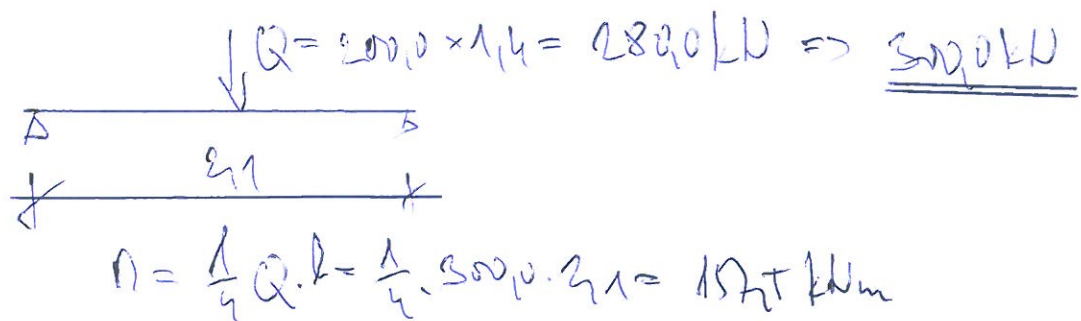 Q = 200,0 × 1,4 = 280,0 kN => 300,0 kN
2,1
M = 1/4 Q . l = 1/4 . 300,0 . 2,1 = 157,5 kNm